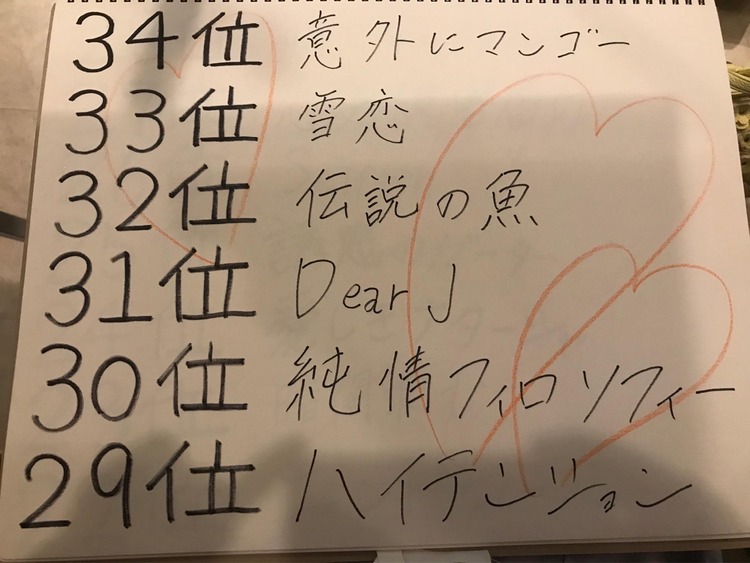 34位 意外にマンゴー
33位 雪恋
32位 伝説の魚
31位 Dear J
30位 純情フィロソフィー
29位 ハイテンション